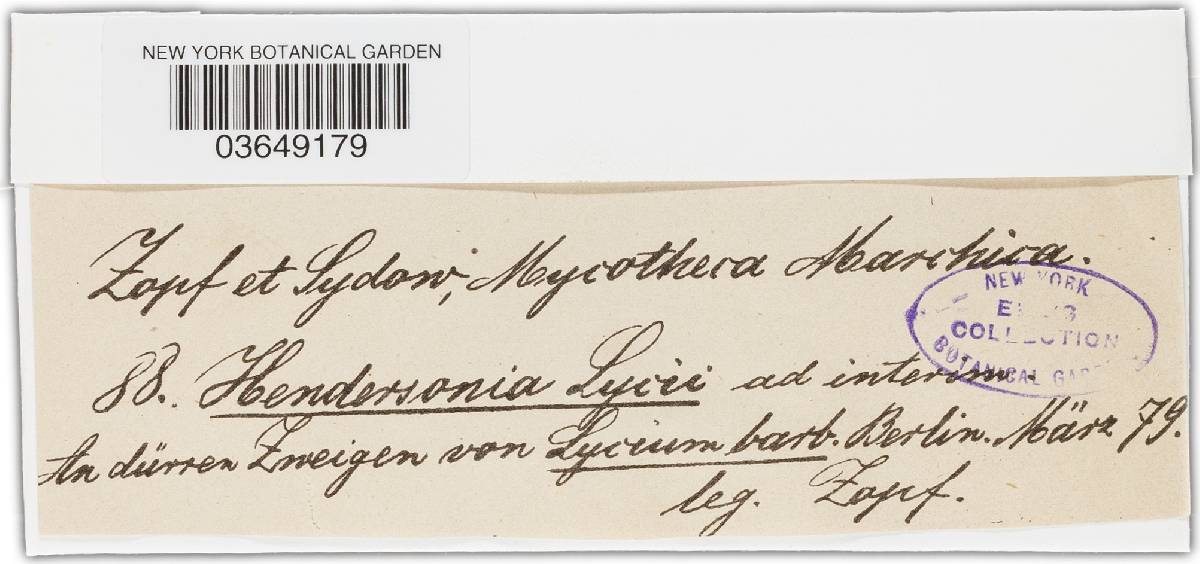 NEW YORK BOTANICAL GARDEN
03649179
Zopf et Sydow, Mycotheca Marchica.
NEW YORK
COLLECTION
BOTANICAL GARDEN
88. Hendersonia Lycii ad interim.
An dürren Zweigen von Lycium barb. Berlin. März 79.
leg. Zopf.